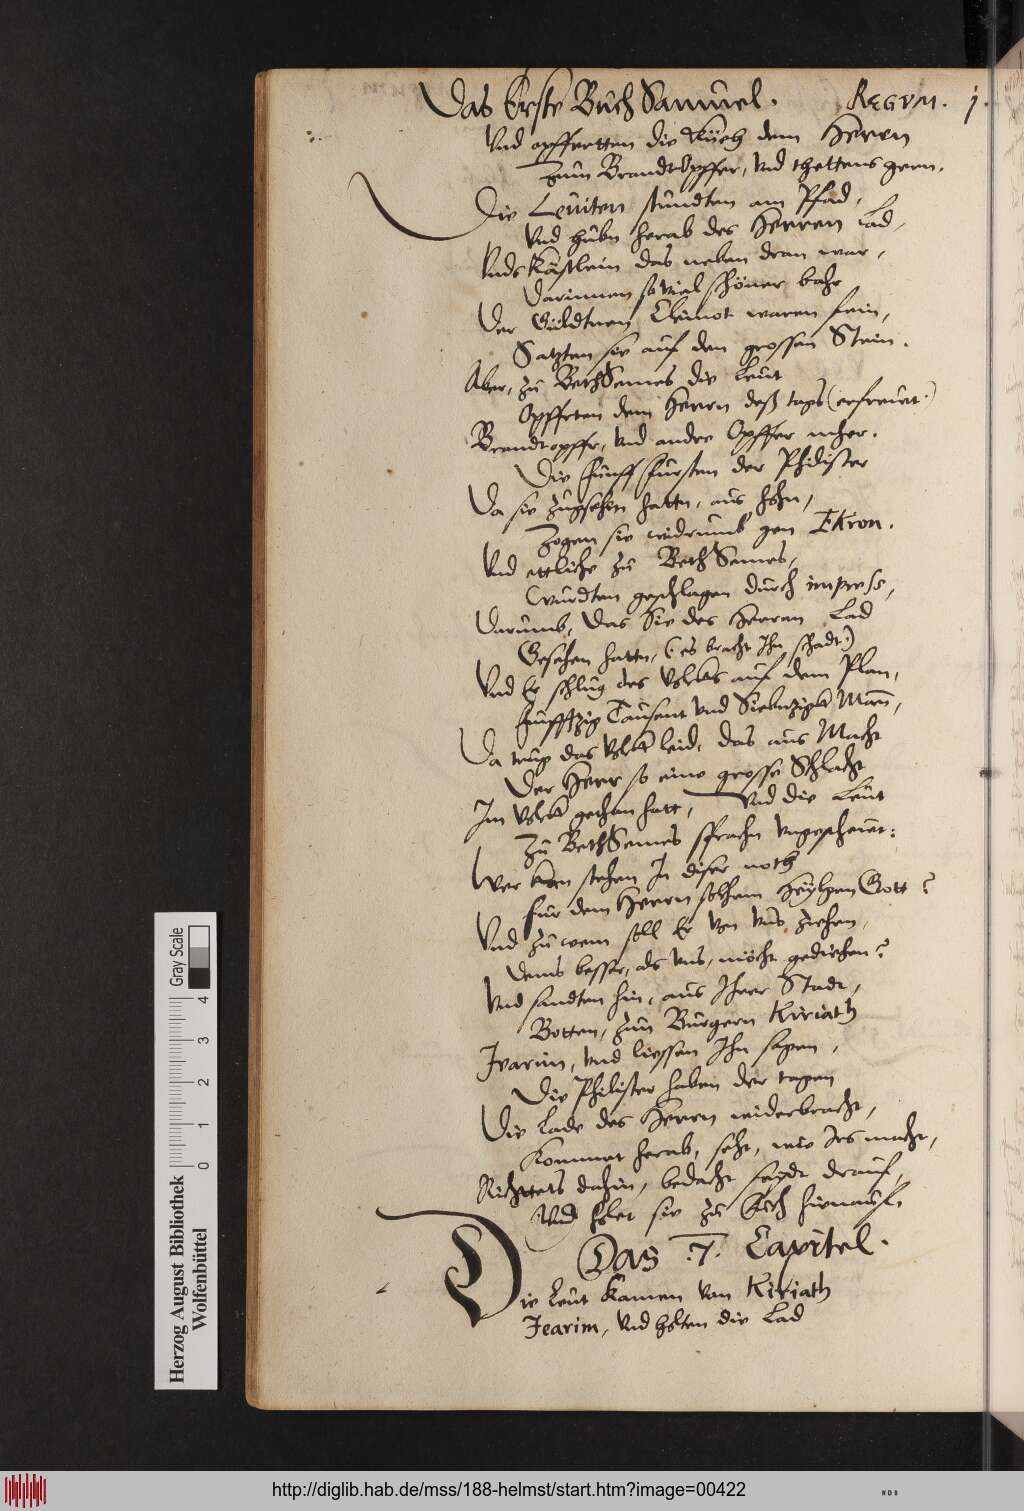 Das Erste Buch Samuel. REGVM. 1.
Vnd opfferten die Küeh dem Herrn
Zum Brandtopffer, Vnd thettens gern.
Die Leuiten stundten am Pfad,
Vnd hubn herab des Herren Lad,
Vnds Kästlein das neben dran war,
Darinnen so viel schöner
Der Güldtnen Cleinot waren fein,
Satzten sie auf den grossen Stein.
Aber, zu BethSemes die Leut
Opfferten dem Herrn deß tags (erfreuet.)
Brandtopffr, Vnd andre Opffer mher.
Die fünff fürsten der Philister
Da sie zugesehen hattn, aus hohn,
Zogen sie widrumb gen EKron.
Vnd ettliche zu BethSemes,
Wurdten geschlagen durch impress,
Darumb, Das Sie des Herren Lad
Gesehen hattn, (es bracht Ihn schadt)
Vnd Er schlug des Volcks auf dem Plan,
funfftzig Tausent Vnd Siebntzigk Mann,
Da trug das Volck leid, das aus Macht
Der Herr so eine grosse Schlacht
Im Volck gethan hatt, Vnd die Leut
Zu BethSemes sprachn Vngescheuet:
Wer kan stehen In diser noth
für dem Herrn solchem Heyligen Gott?
Vnd zu wem soll Er von Vns ziehen,
Dems besser, als Vns, möcht gediehen?
Vnd sandten hin, aus Ihrer Stadt,
Botten, zun Burgern Kiriath
Jearim, Vnd liessen Ihn sagen,
Die Philister haben der tagen
Die Lade des Herrn widerbracht,
Kommet herab, seht, wie Irs macht,
Richttets dahin, bedacht seydt drauf,
Vnd holet sie zu Euch hienauf.
Das .7. Capitel.
Die Leut Kamen von Kiriath
Jearim, Vnd holten die Lad
Gray Scale
0 1 2 3 4
Herzog August Bibliothek
Wolfenbüttel
http://diglib.hab.de/mss/188-helmst/start.htm?image=00422